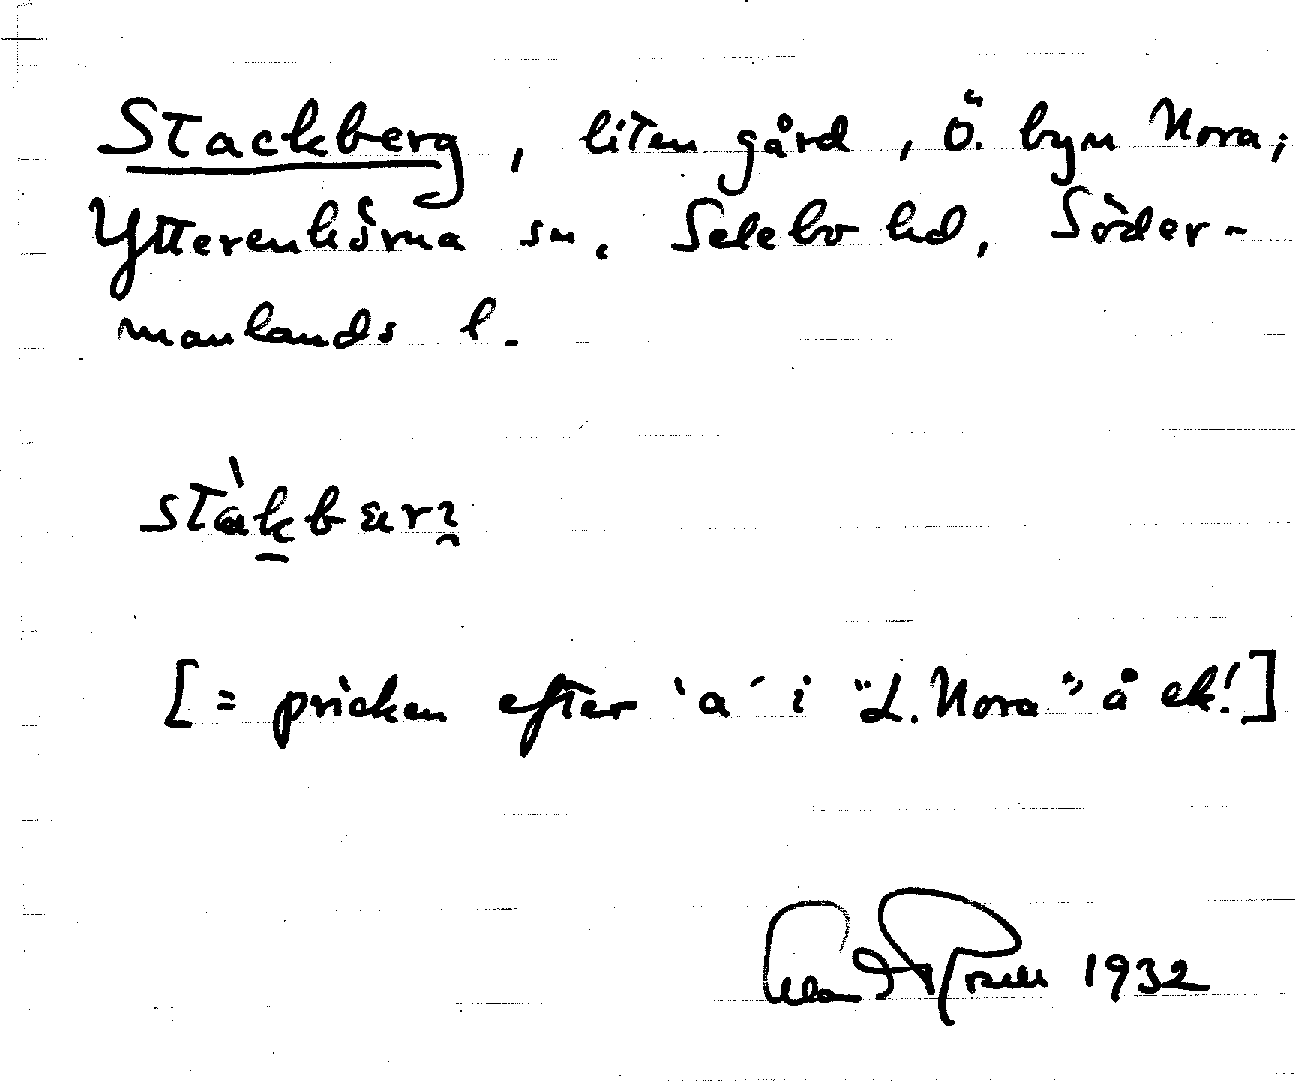 Stackberg, liten gård, Ö. byn Nora;
Ytterenhörna sn. Selebo hd, Söder-
manlands l.
[= pricken efter 'a' i "L. Nora" å ek!]
1932